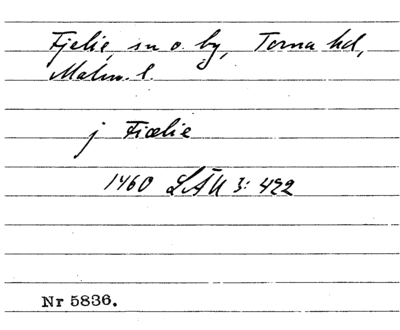 Fjelie, sn o. by, Torna hd,
Malm. l.
j Fiælie
1460 LÄU 3: 422
Nr 5836.